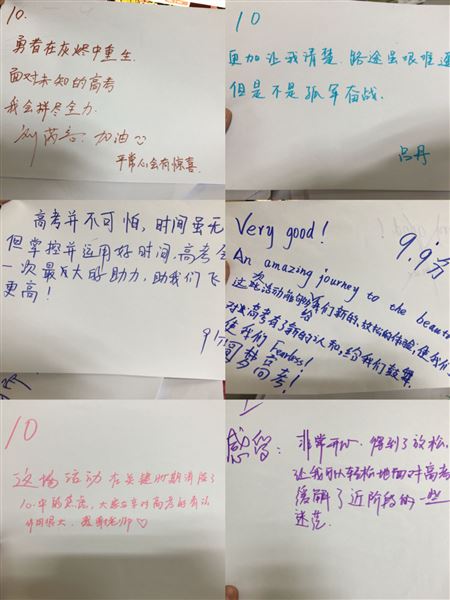 10.
勇者在灰烬中重生.
面对未知的高考
我会拼尽全力.
加油
平常心会有惊喜.
10
更加让我清楚. 路途虽艰难遥
但是不是孤军奋战.
吕丹
高考并不可怕, 时间虽无
但掌控并运用好时间.高考会
一次最大的助力, 助我们飞
更高!
圆梦高考!
Very good!
9.9分
An amazing journey to the beaut
这次活动能够给我们新的、放松的体验, 使我们
对高考有了新的认知, 给我们鼓舞.
使我们Fearless!
10
这场活动 在关键时期消除了
心中的焦虑, 大家在对高考的有认
作用很大, 感谢老师♡
感留: 非常开心. 得到了放松,
让我可以轻松地面对高考
缓解了近阶段的一些
迷茫.